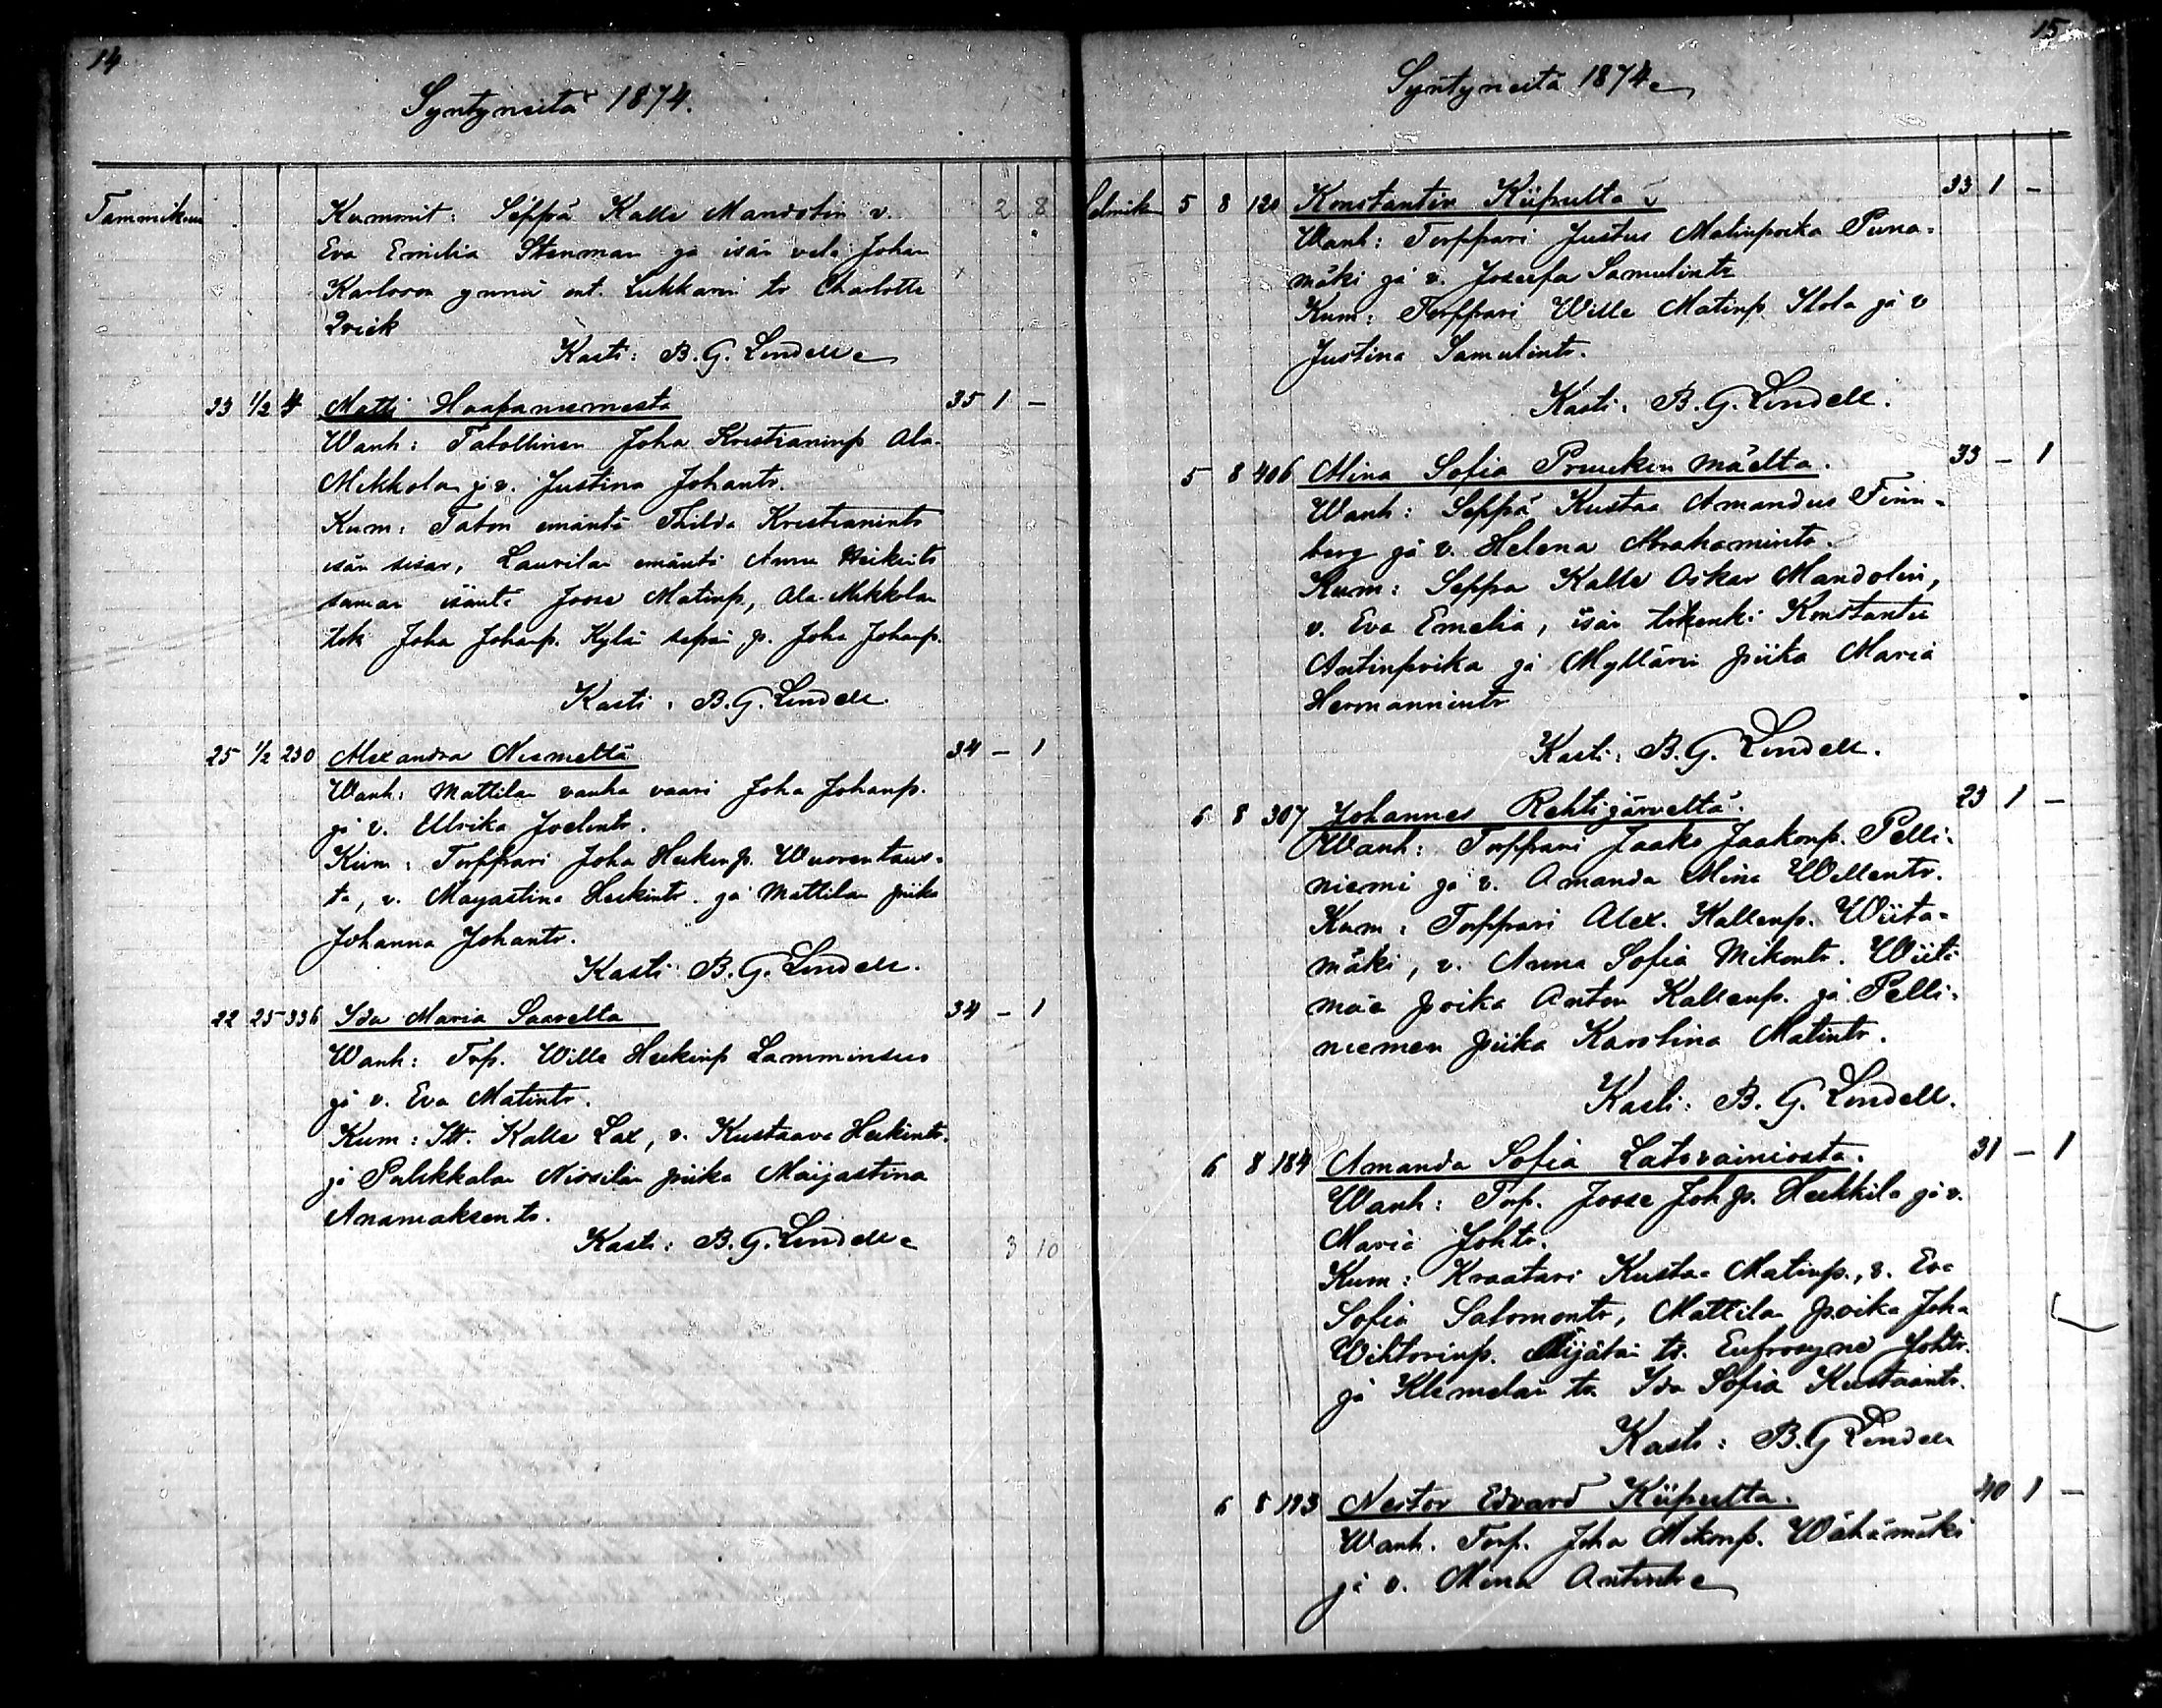 14
Syntyneitä 1874.
Tammikuu Kummit: Seppä Kalle Mandolin v. 2 8
Eva Emilia Stenman ja isän veli Johan
Karlsson ynnä ent. Lukkarin tr Charlotte
Qvick
Kasti: B. G. Lindell
23 1/2 4 Matti Haapaniemestä 35 1 –
Wanh: Talollinen Joha Kristianinp Ala-
Mikkola j v. Justina Johantr.
Kum: Talon emäntä Thilda Kristianintr
isän sisar, Laurilan emäntä Anna Heikintr
saman isäntä Joose Matinp, Ala-Mikkolan
Joha Johanp. Kylän sepän p. Joha Johanp.
Kasti: B. G. Lindell
25 1/2 230 Alexandra Niemeltä 34 – 1
Wanh: Mattilan vanha vaari Joha Johanp.
ja v. Ulrika Joelintr.
Kum: Torppari Joha Heikinp. Wuorentaus-
ta, v. Mayastina Heikintr. ja Mattilan piika
Johanna Johantr.
Kasti: B. G. Lindell.
22 25 336 Ida Maria Saarelta 34 – 1
Wanh: Torp. Wille Heikinp Lamminsuo
ja v. Eva Matintr.
Kum: Itt. Kalle Lax, v. Kustaava Heikintr.
ja Palikkalan piika Maijastina
Ananiaksentr.
Kasti: B. G. Lindell 3 10
15
Syntyneitä 1874
Helmikuu 5 8 120 Konstantin Kiipulta 33 1 –
Wanh: Torppari Justus Matinpoika Puna-
mäki ja v. Josefa Samulintr
Kum: Torppari Wille Matinp. Ilola ja v
Justina Samulintr.
Kasti: B. G. Lindell.
5 8 406 Mina Sofia Pruukin mäelta. 33 – 1
Wanh: Seppä Kustaa Amandus Finn-
berg ja v. Helena Abrahamintr.
Kum: Seppä Kalle Oskar Mandolin,
v. Eva Emelia, isän Konstantin
Antinpoika ja Myllärin piika Maria
Hermannintr
Kasti: B. G. Lindell.
6 8 307 Johannes Rehtijärveltä. 23 1 –
Wanh: Torppari Jaako Jaakonp. Pelli-
niemi ja v. Amanda Mina Willentr.
Kum: Torppari Alex. Kallenp. Wiita-
mäki, v. Anna Sofia Mikontr. Wiita
mäe poika Anton Kallenp. ja Pelli-
niemen piika Karolina Matintr.
Kasti: B. G. Lindell.
6 8 184 Amanda Sofia Latovainiosta. 31 – 1
Wanh: Torp. Joose Joh p. Heikkilä ja v.
Maria Johtr.
Kum: Kraatari Kustaa Matinp., v. Eva
Sofia Salomontr, Mattilan poika Joha
Wihtorinp. Äijälän tr. Eufrosyne Johtr.
ja Klemelän tr. Ida Sofia Kustaantr.
Kasti: B. G Lindell
6 8 193 Nestor Edvard Kiipulta. 40 1 –
Wanh. Torp. Joha Mikonp. Wähämäki
ja v. Mina Antintr